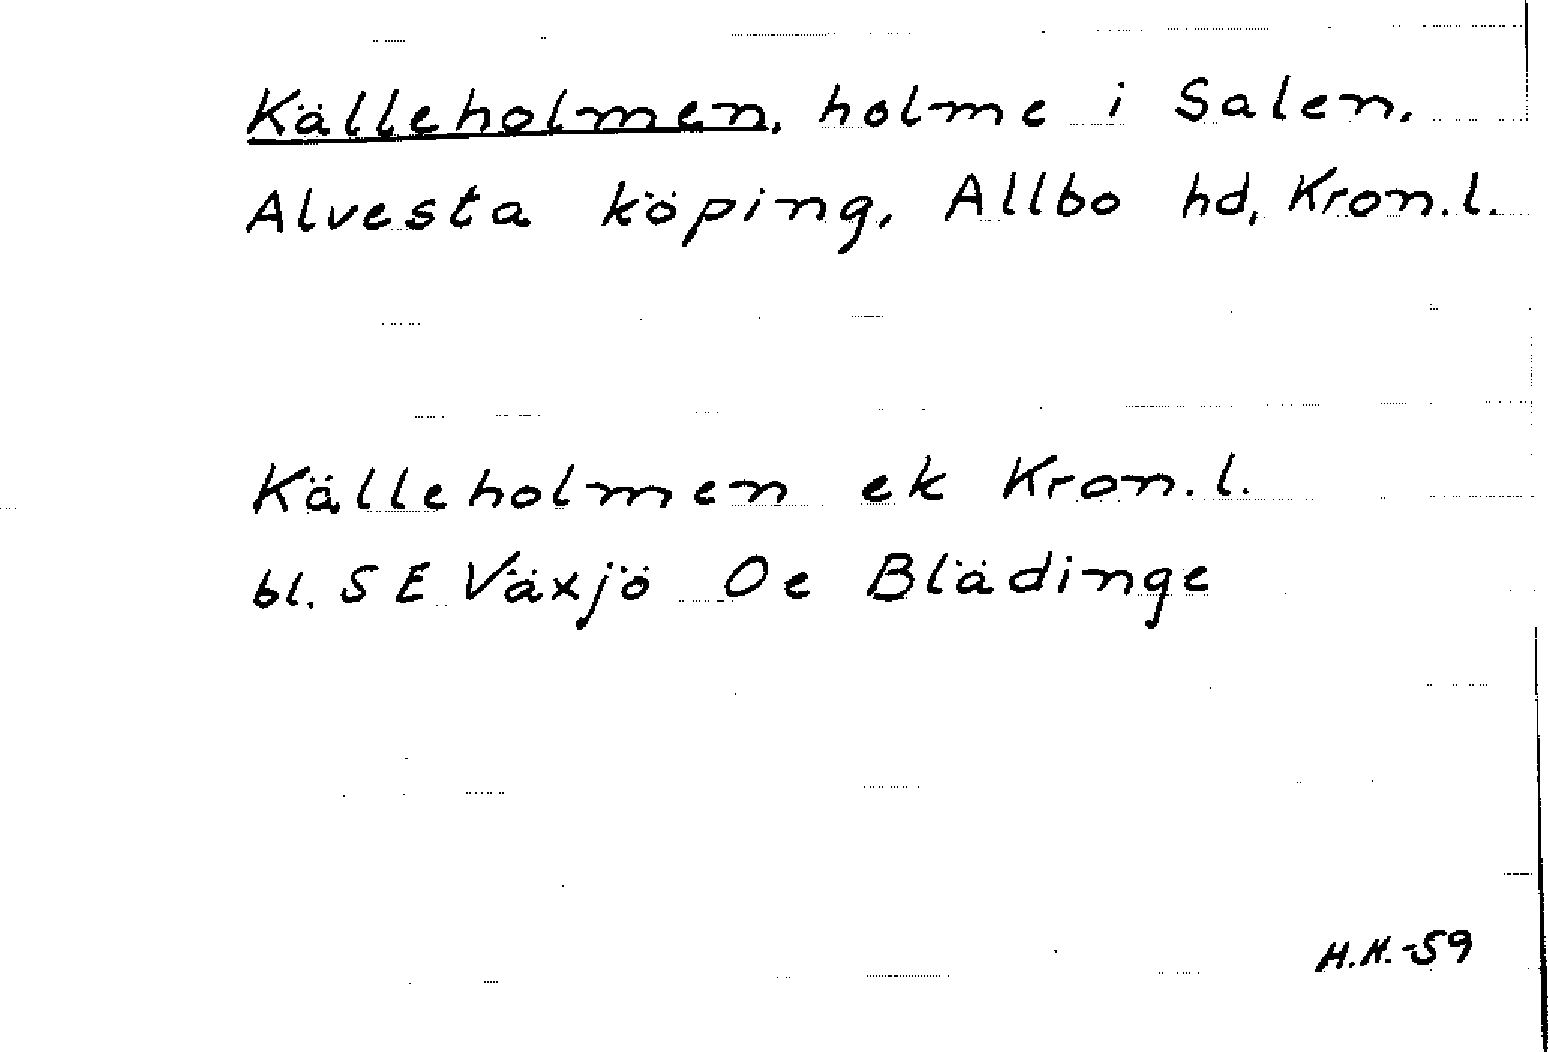 Källeholmen, holme i Salen.
Alvesta köping, Allbo hd, Kron.l.
Källeholmen ek Kron.l.
bl. SE Växjö Oe Blädinge
H.K.-59